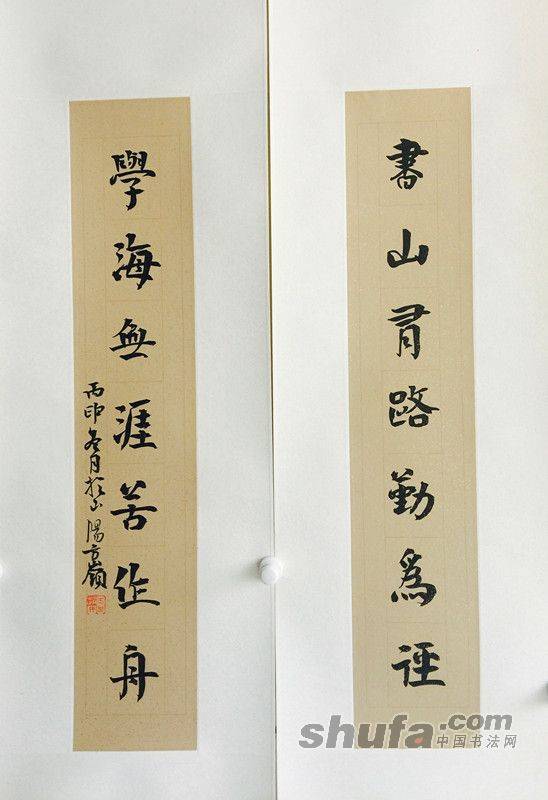 書山有路勤爲徑
學海無涯苦作舟
丙申冬月於山陽方嶺
shufa.com
中国书法网